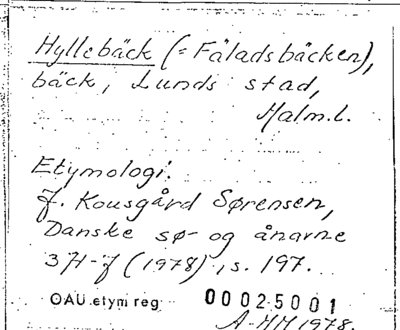 Hyllebäck (= Fäladsbäcken),
bäck, Lunds stad,
Malm.l.
Etymologi:
J. Kousgård Sørensen,
Danske sø- og ånavne
3 H-J (1978), s. 197.
OAU etym reg 00025001
A-HH 1978.